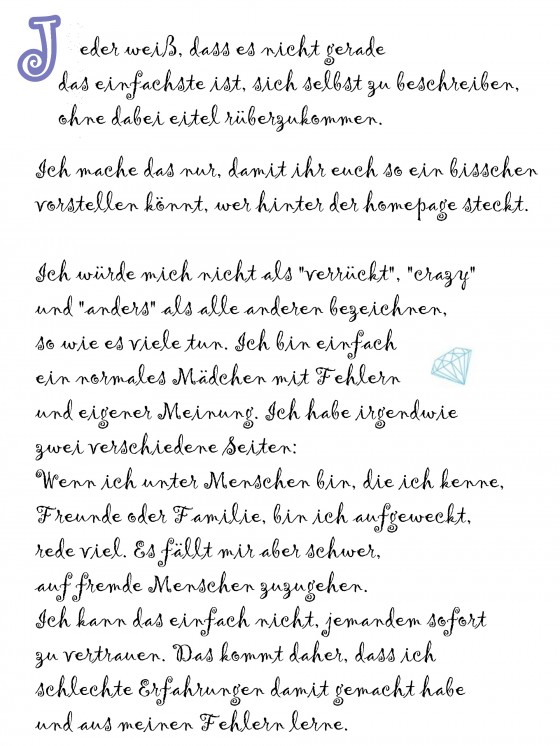 Jeder weiß, dass es nicht gerade
das einfachste ist, sich selbst zu beschreiben,
ohne dabei eitel rüberzukommen.
Ich mache das nur, damit ihr euch so ein bisschen
vorstellen könnt, wer hinter der homepage steckt.
Ich würde mich nicht als "verrückt", "crazy"
und "anders" als alle anderen bezeichnen,
so wie es viele tun. Ich bin einfach
ein normales Mädchen mit Fehlern
und eigener Meinung. Ich habe irgendwie
zwei verschiedene Seiten:
Wenn ich unter Menschen bin, die ich kenne,
Freunde oder Familie, bin ich aufgeweckt,
rede viel. Es fällt mir aber schwer,
auf fremde Menschen zuzugehen.
Ich kann das einfach nicht, jemandem sofort
zu vertrauen. Das kommt daher, dass ich
schlechte Erfahrungen damit gemacht habe
und aus meinen Fehlern lerne.